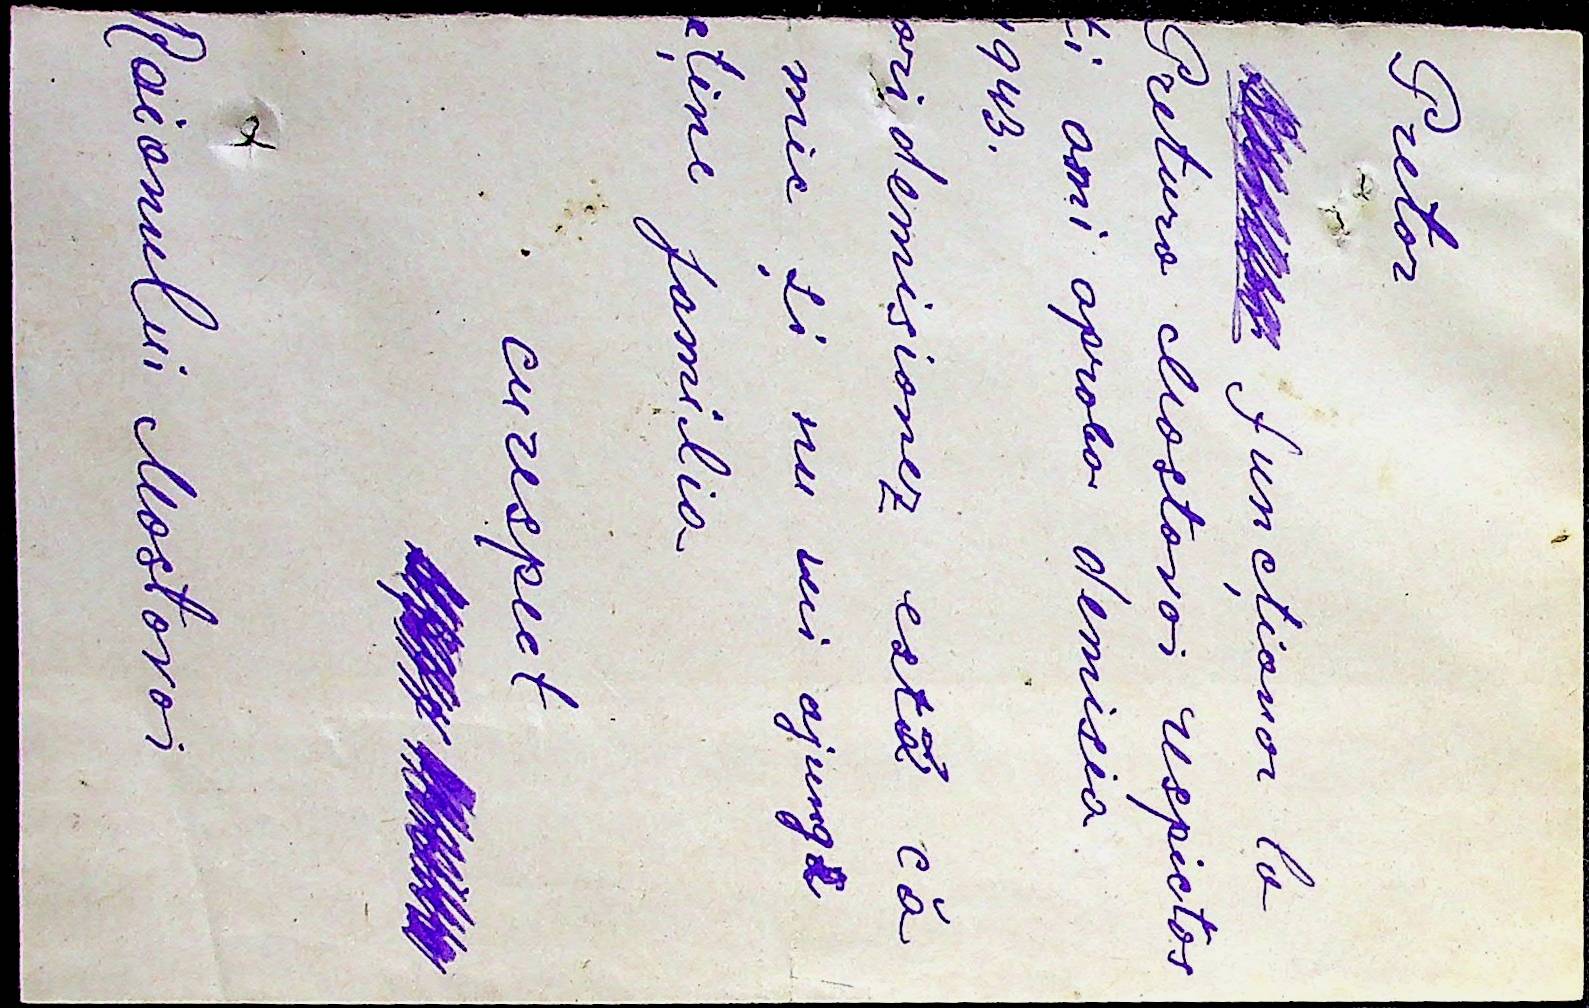 Pretor
funcționar la
Pretura Mostovoi respectos
ți ami aproba demisia
1943.
ori demisionez estă că
mic și nu mi ajunge
eține familia
cu respect
Raionului Mostovoi